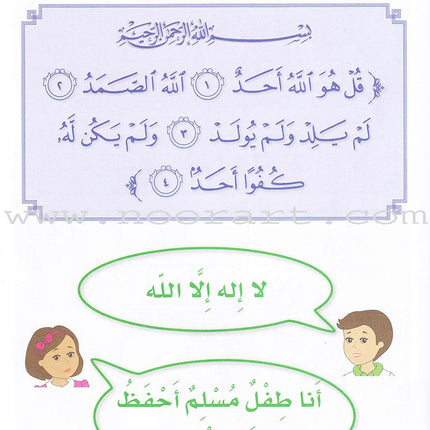 بِسْمِ اللَّهِ الرَّحْمَٰنِ الرَّحِيمِ
﴿ قُلْ هُوَ ٱللَّهُ أَحَدٌ ١ ٱللَّهُ ٱلصَّمَدُ ٢
لَمْ يَلِدْ وَلَمْ يُولَدْ ٣ وَلَمْ يَكُن لَّهُۥ
كُفُوًا أَحَدٌۢ ٤ ﴾
www.noorart.com
لا إِله إِلَّا اللّه
أَنا طِفْلٌ مُسْلِمٌ أَحْفَظُ